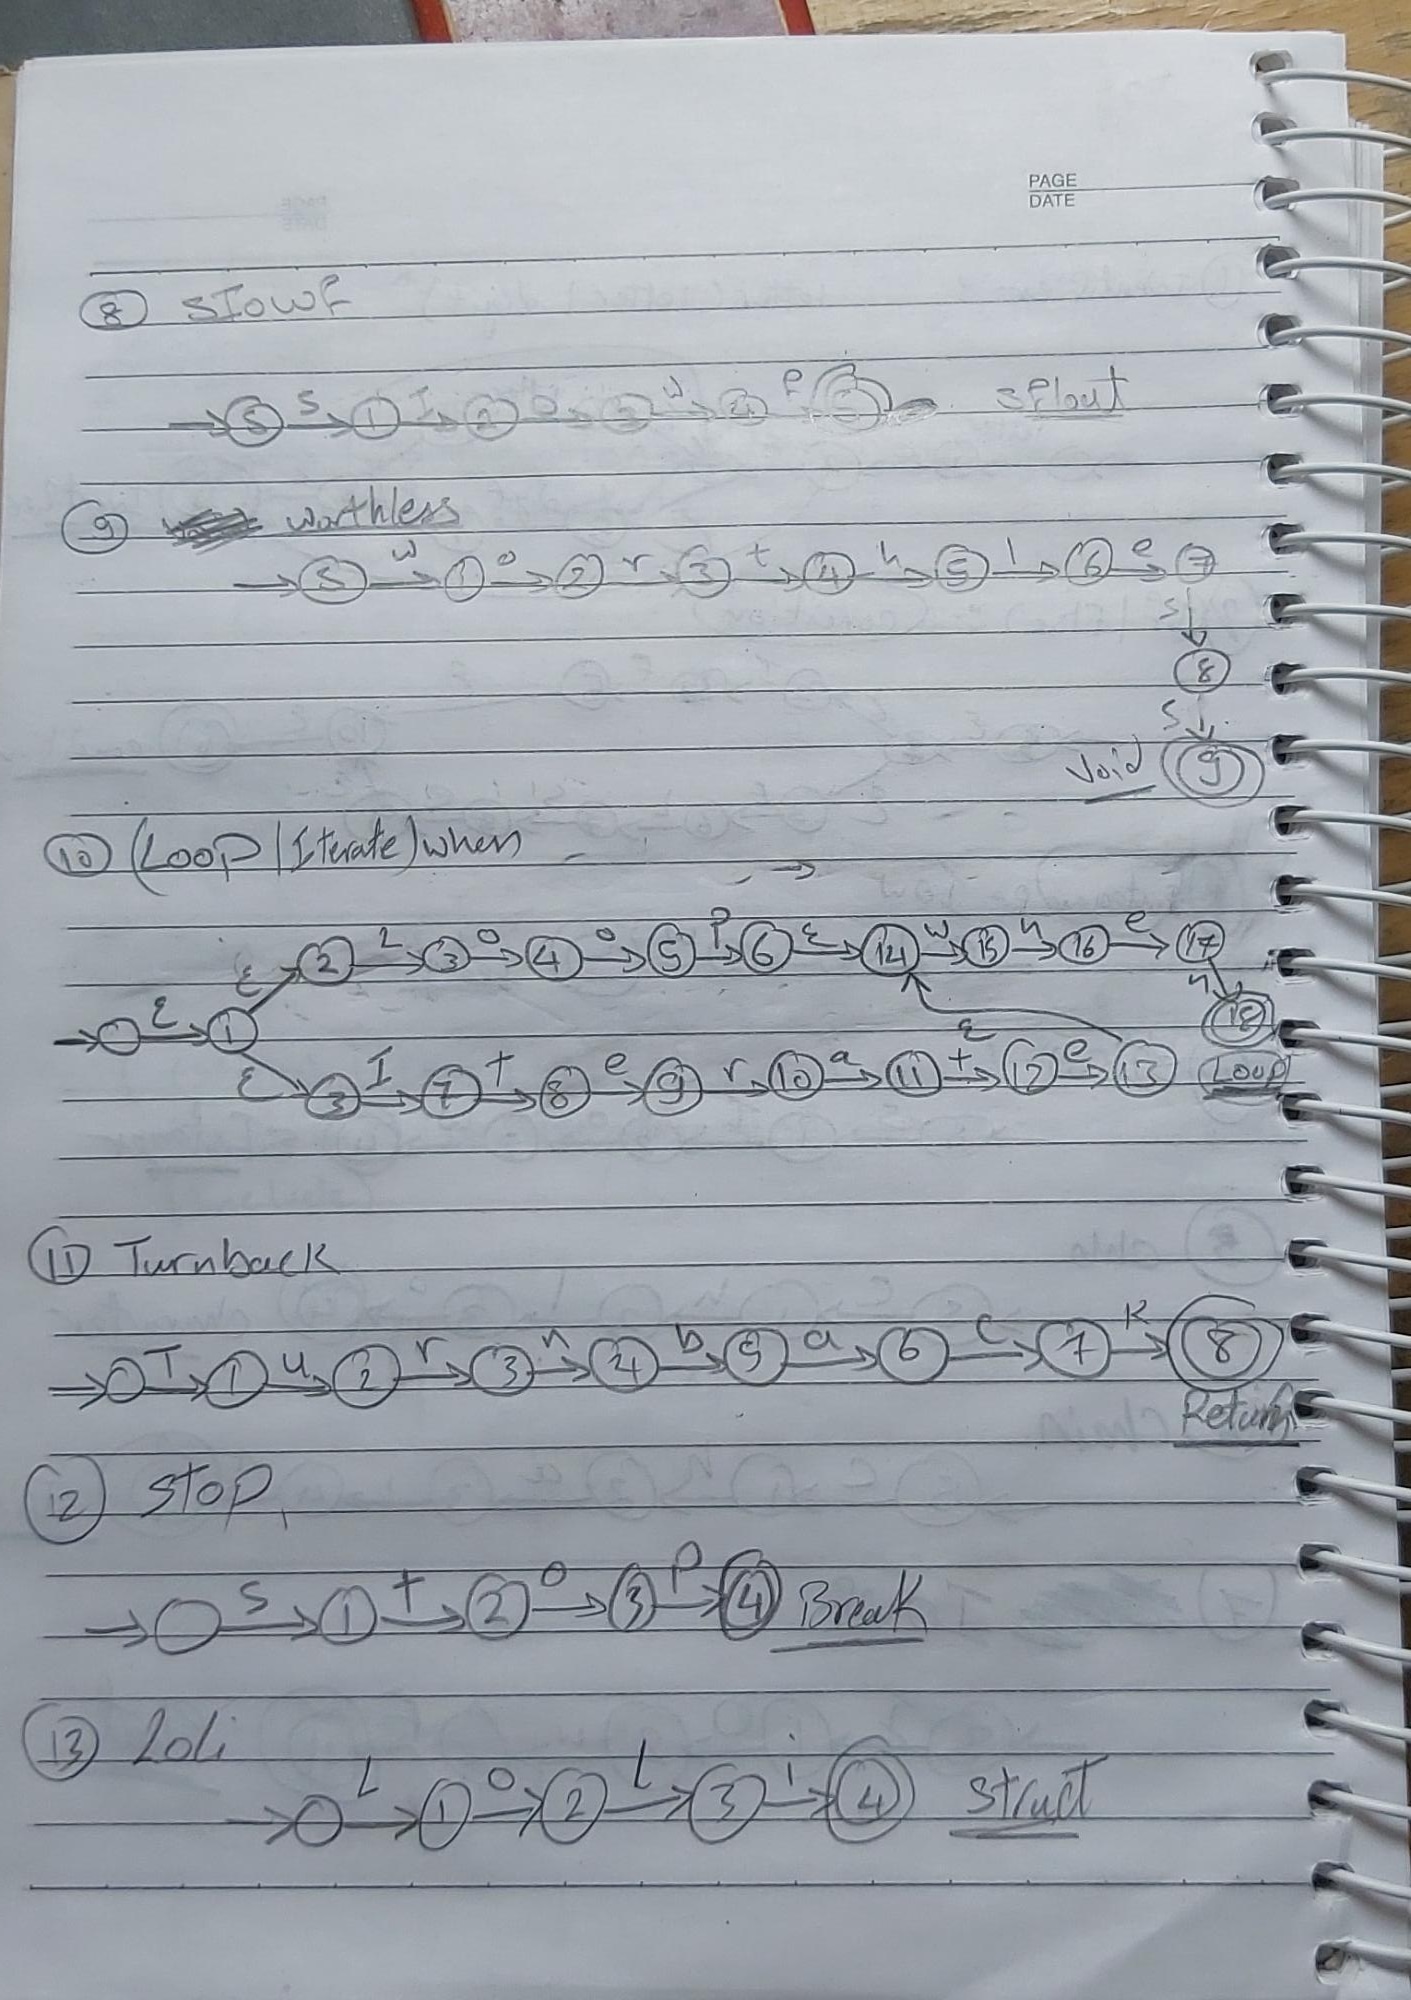 PAGE
DATE
8 SIowf
S S 1 I 2 o 3 w 4 f 5 sfloat
9 worthless
S w 1 o 2 r 3 t 4 h 5 l 6 e 7
s
8
s
void 9
10 (Loop | Iterate) when
ε 2 L 3 o 4 o 5 p 6 ε 14 w 15 h 16 e 17
n
ε 1 18
ε 3 I 7 t 8 e 9 r 10 a 11 t 12 e 13 ε Loop
11 Turnback
T 1 u 2 r 3 n 4 b 5 a 6 c 7 k 8
Return
12 Stop
S 1 t 2 o 3 p 4 Break
13 Loli
L 1 o 2 l 3 i 4 struct